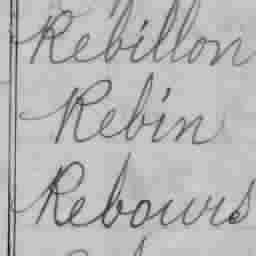 Rebillon
Rebin
Rebours